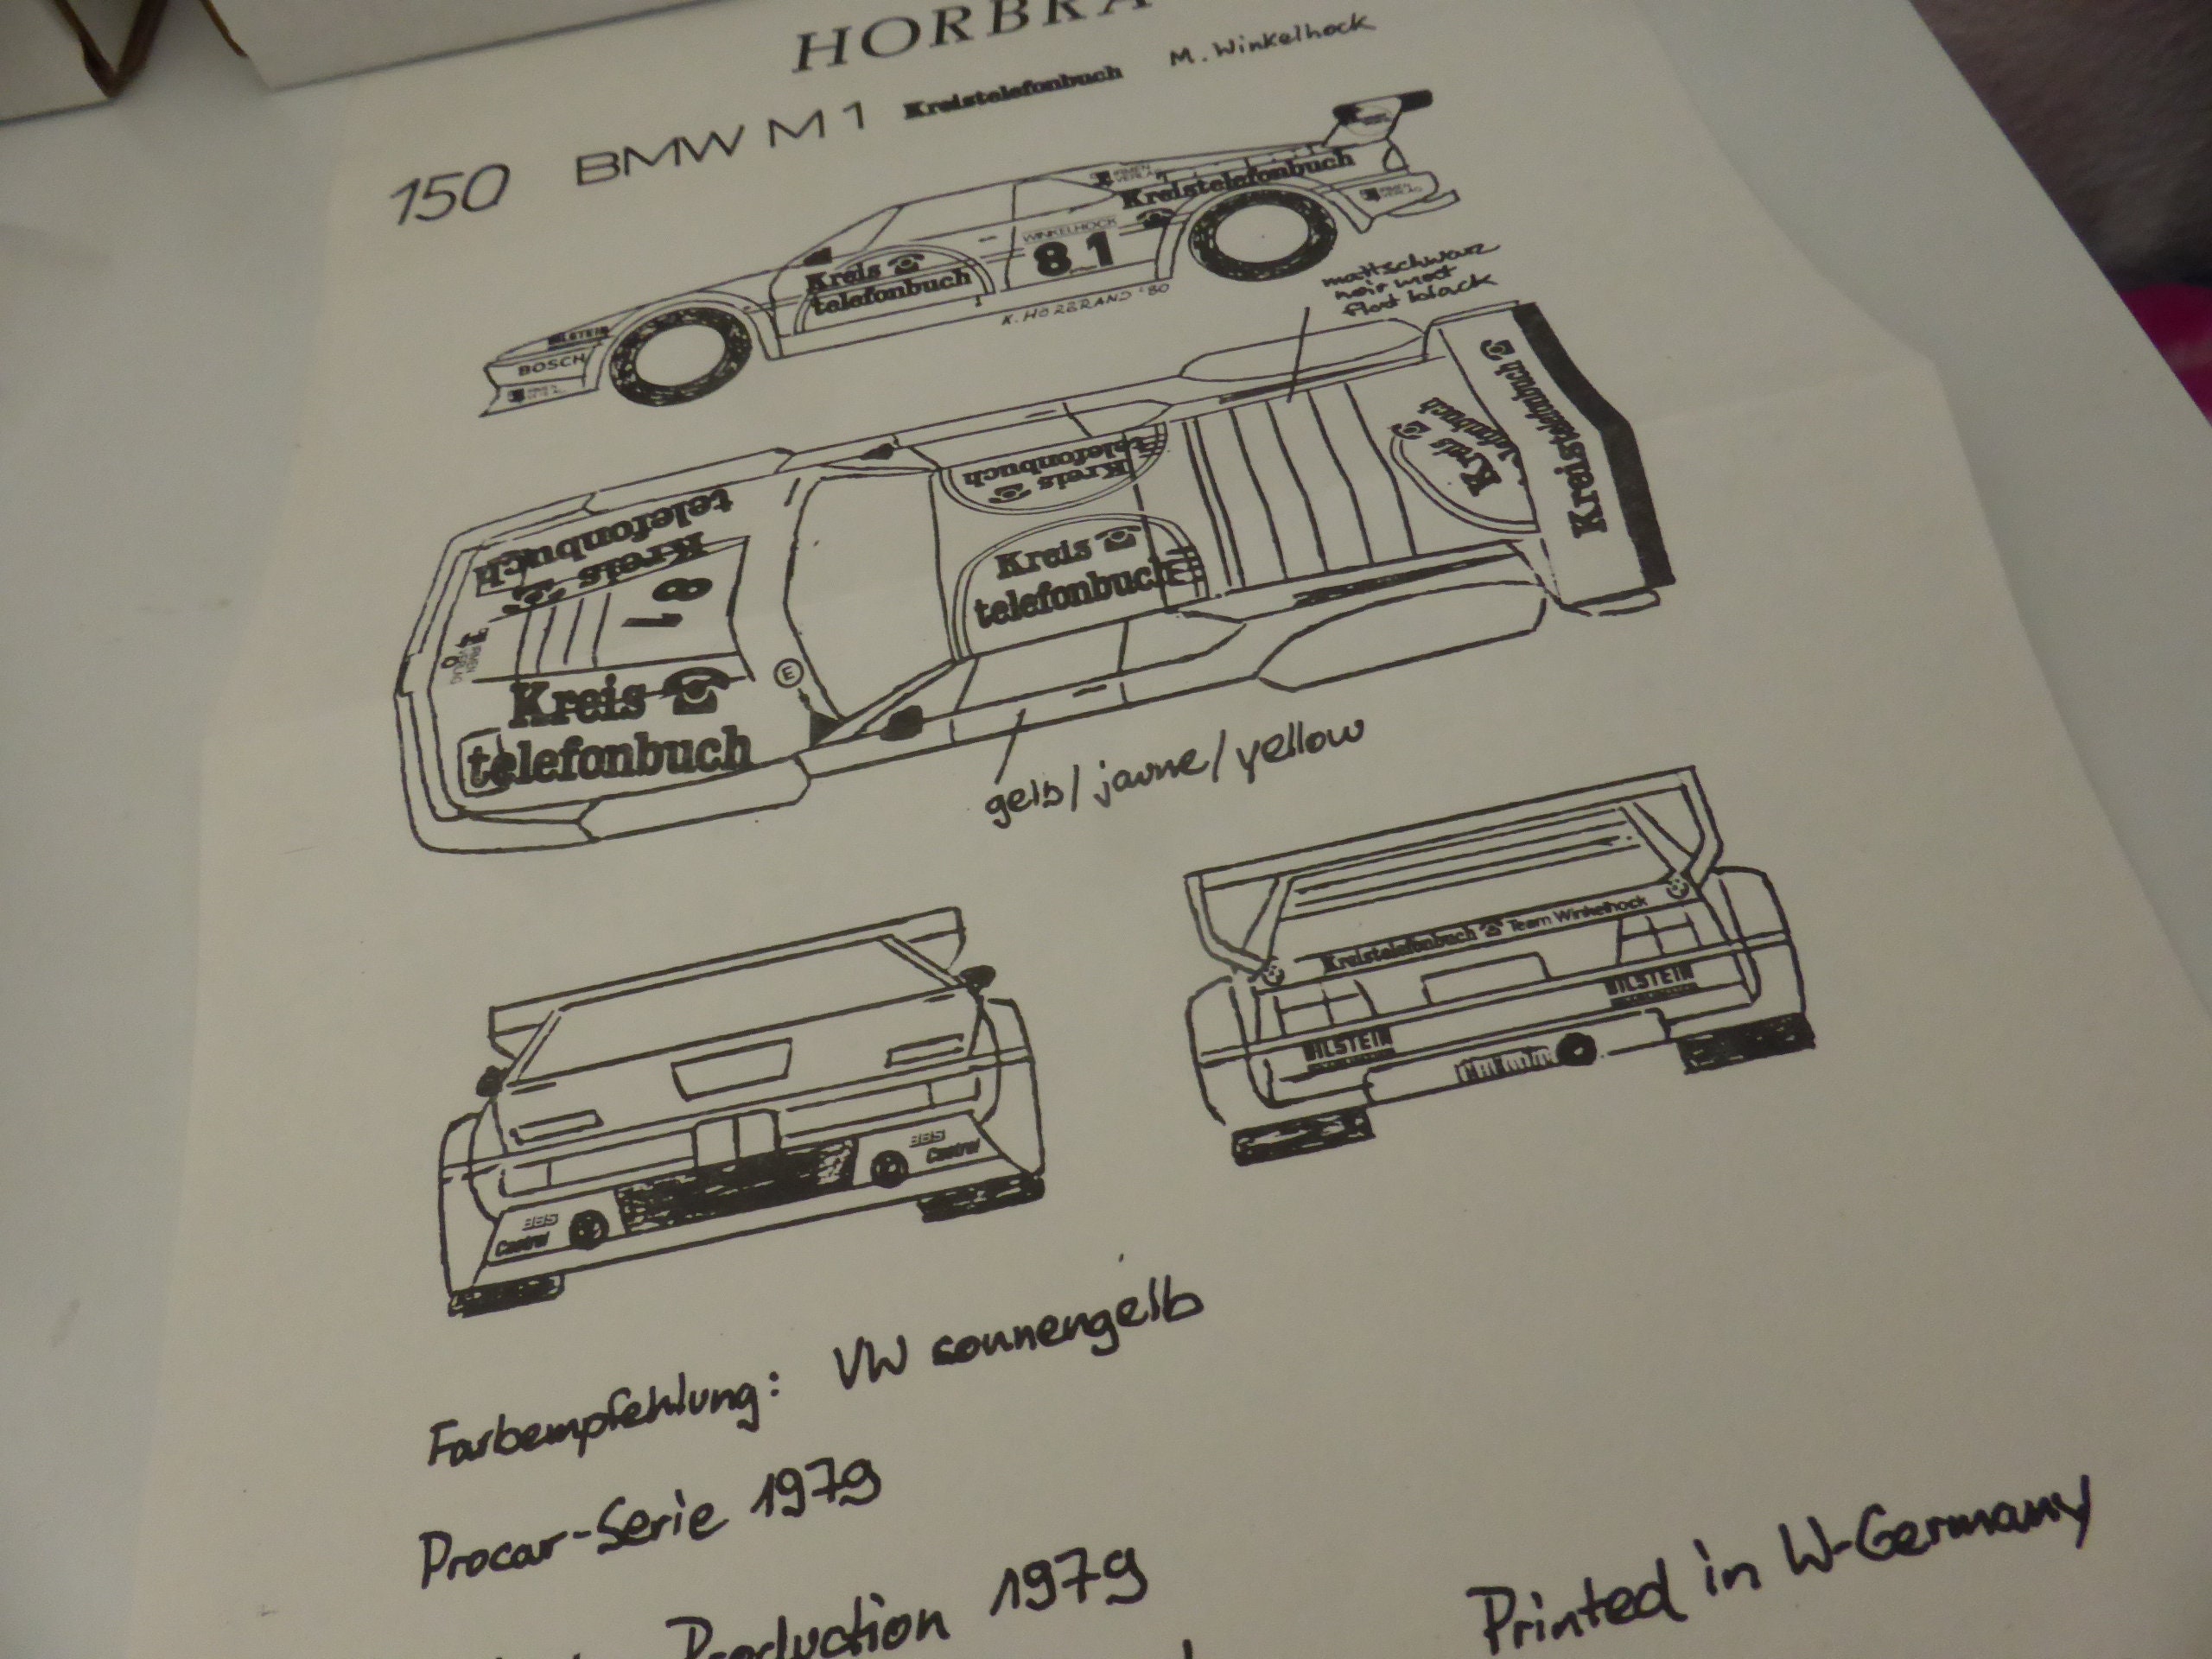 HORBRA
150 BMW M1 Kreistelefonbuch M. Winkelhock
Kreistelefonbuch
WINKELHOCK
81
Kreis
telefonbuch
K. HORBRAND '80
BOSCH
mattschwarz
noir mat
flat black
Kreis
telefonbuch
Kreis
telefonbuch
Kreis
telefonbuch
Kreistelefonbuch
Kreis
telefonbuch
81
E
Kreis
telefonbuch
gelb/jaune/yellow
Kreistelefonbuch Team Winkelhock
BILSTEIN
BILSTEIN
BBS
Castrol
BBS
Castrol
Farbempfehlung: VW sonnengelb
Procar-Serie 1979
Production 1979
Printed in W-Germany